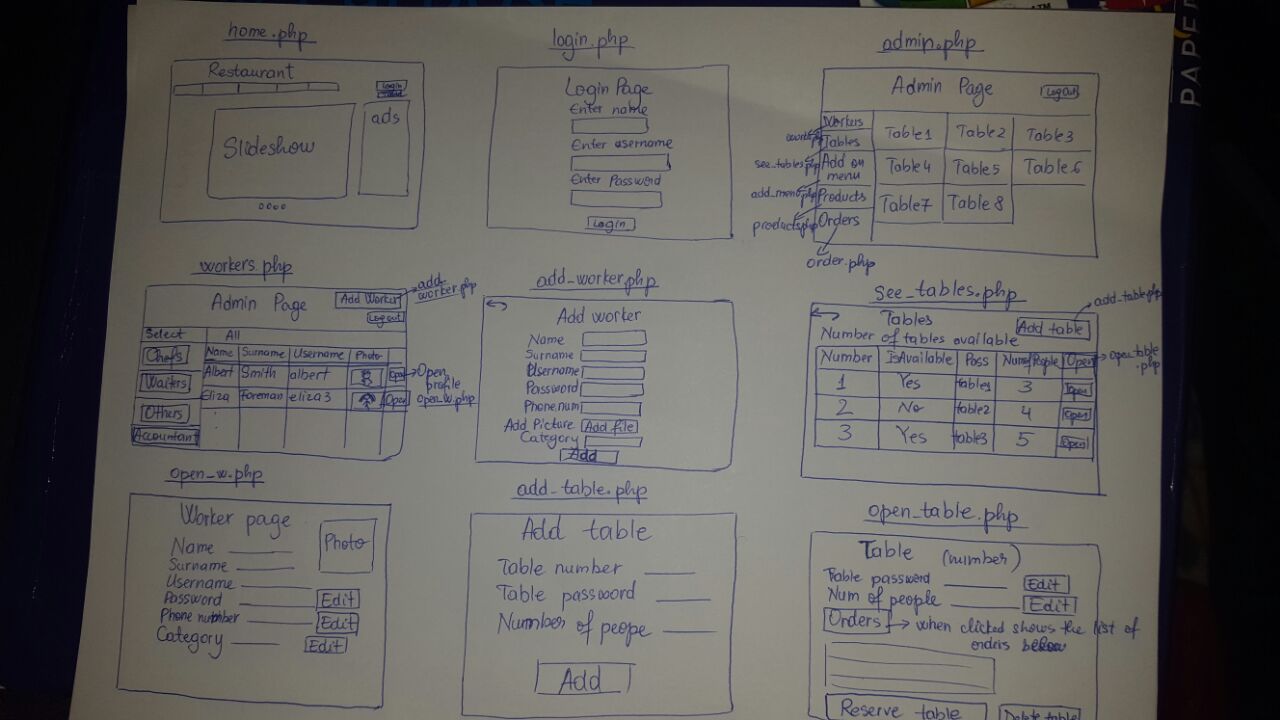 PAPER
home.php
Restaurant
Login
Slideshow
ads
login.php
Login Page
Enter name
Enter username
Enter Password
Login
admin.php
Admin Page
Log Out
Workers
Tables
Add on
menu
Products
Orders
see_tables.php
add_menu.php
products.php
order.php
Table 1
Table 2
Table 3
Table 4
Table 5
Table 6
Table 7
Table 8
workers.php
Admin Page
Add Worker
add_
worker.php
Log out
Select
All
Chefs
Waiters
Others
Accountant
Name Surname Username Photo
Albert Smith albert Open
Eliza Foreman eliza3 Open
Open
profile
open_w.php
add_worker.php
Add worker
Name
Surname
Username
Password
Phone num
Add Picture Add file
Category
Add
see_tables.php
add_table.php
Tables
Add table
Number of tables available
Number IsAvailable Pass Num People Open
1 Yes table1 3 Open
2 No table2 4 Open
3 Yes table3 5 Open
open_table
.php
open_w.php
Worker page
Photo
Name
Surname
Username
Password Edit
Phone number Edit
Category Edit
add_table.php
Add table
Table number
Table password
Number of peope
Add
open_table.php
Table (number)
Table password Edit
Num of people Edit
Orders → when clicked shows the list of
orders below
Reserve table
Delete table